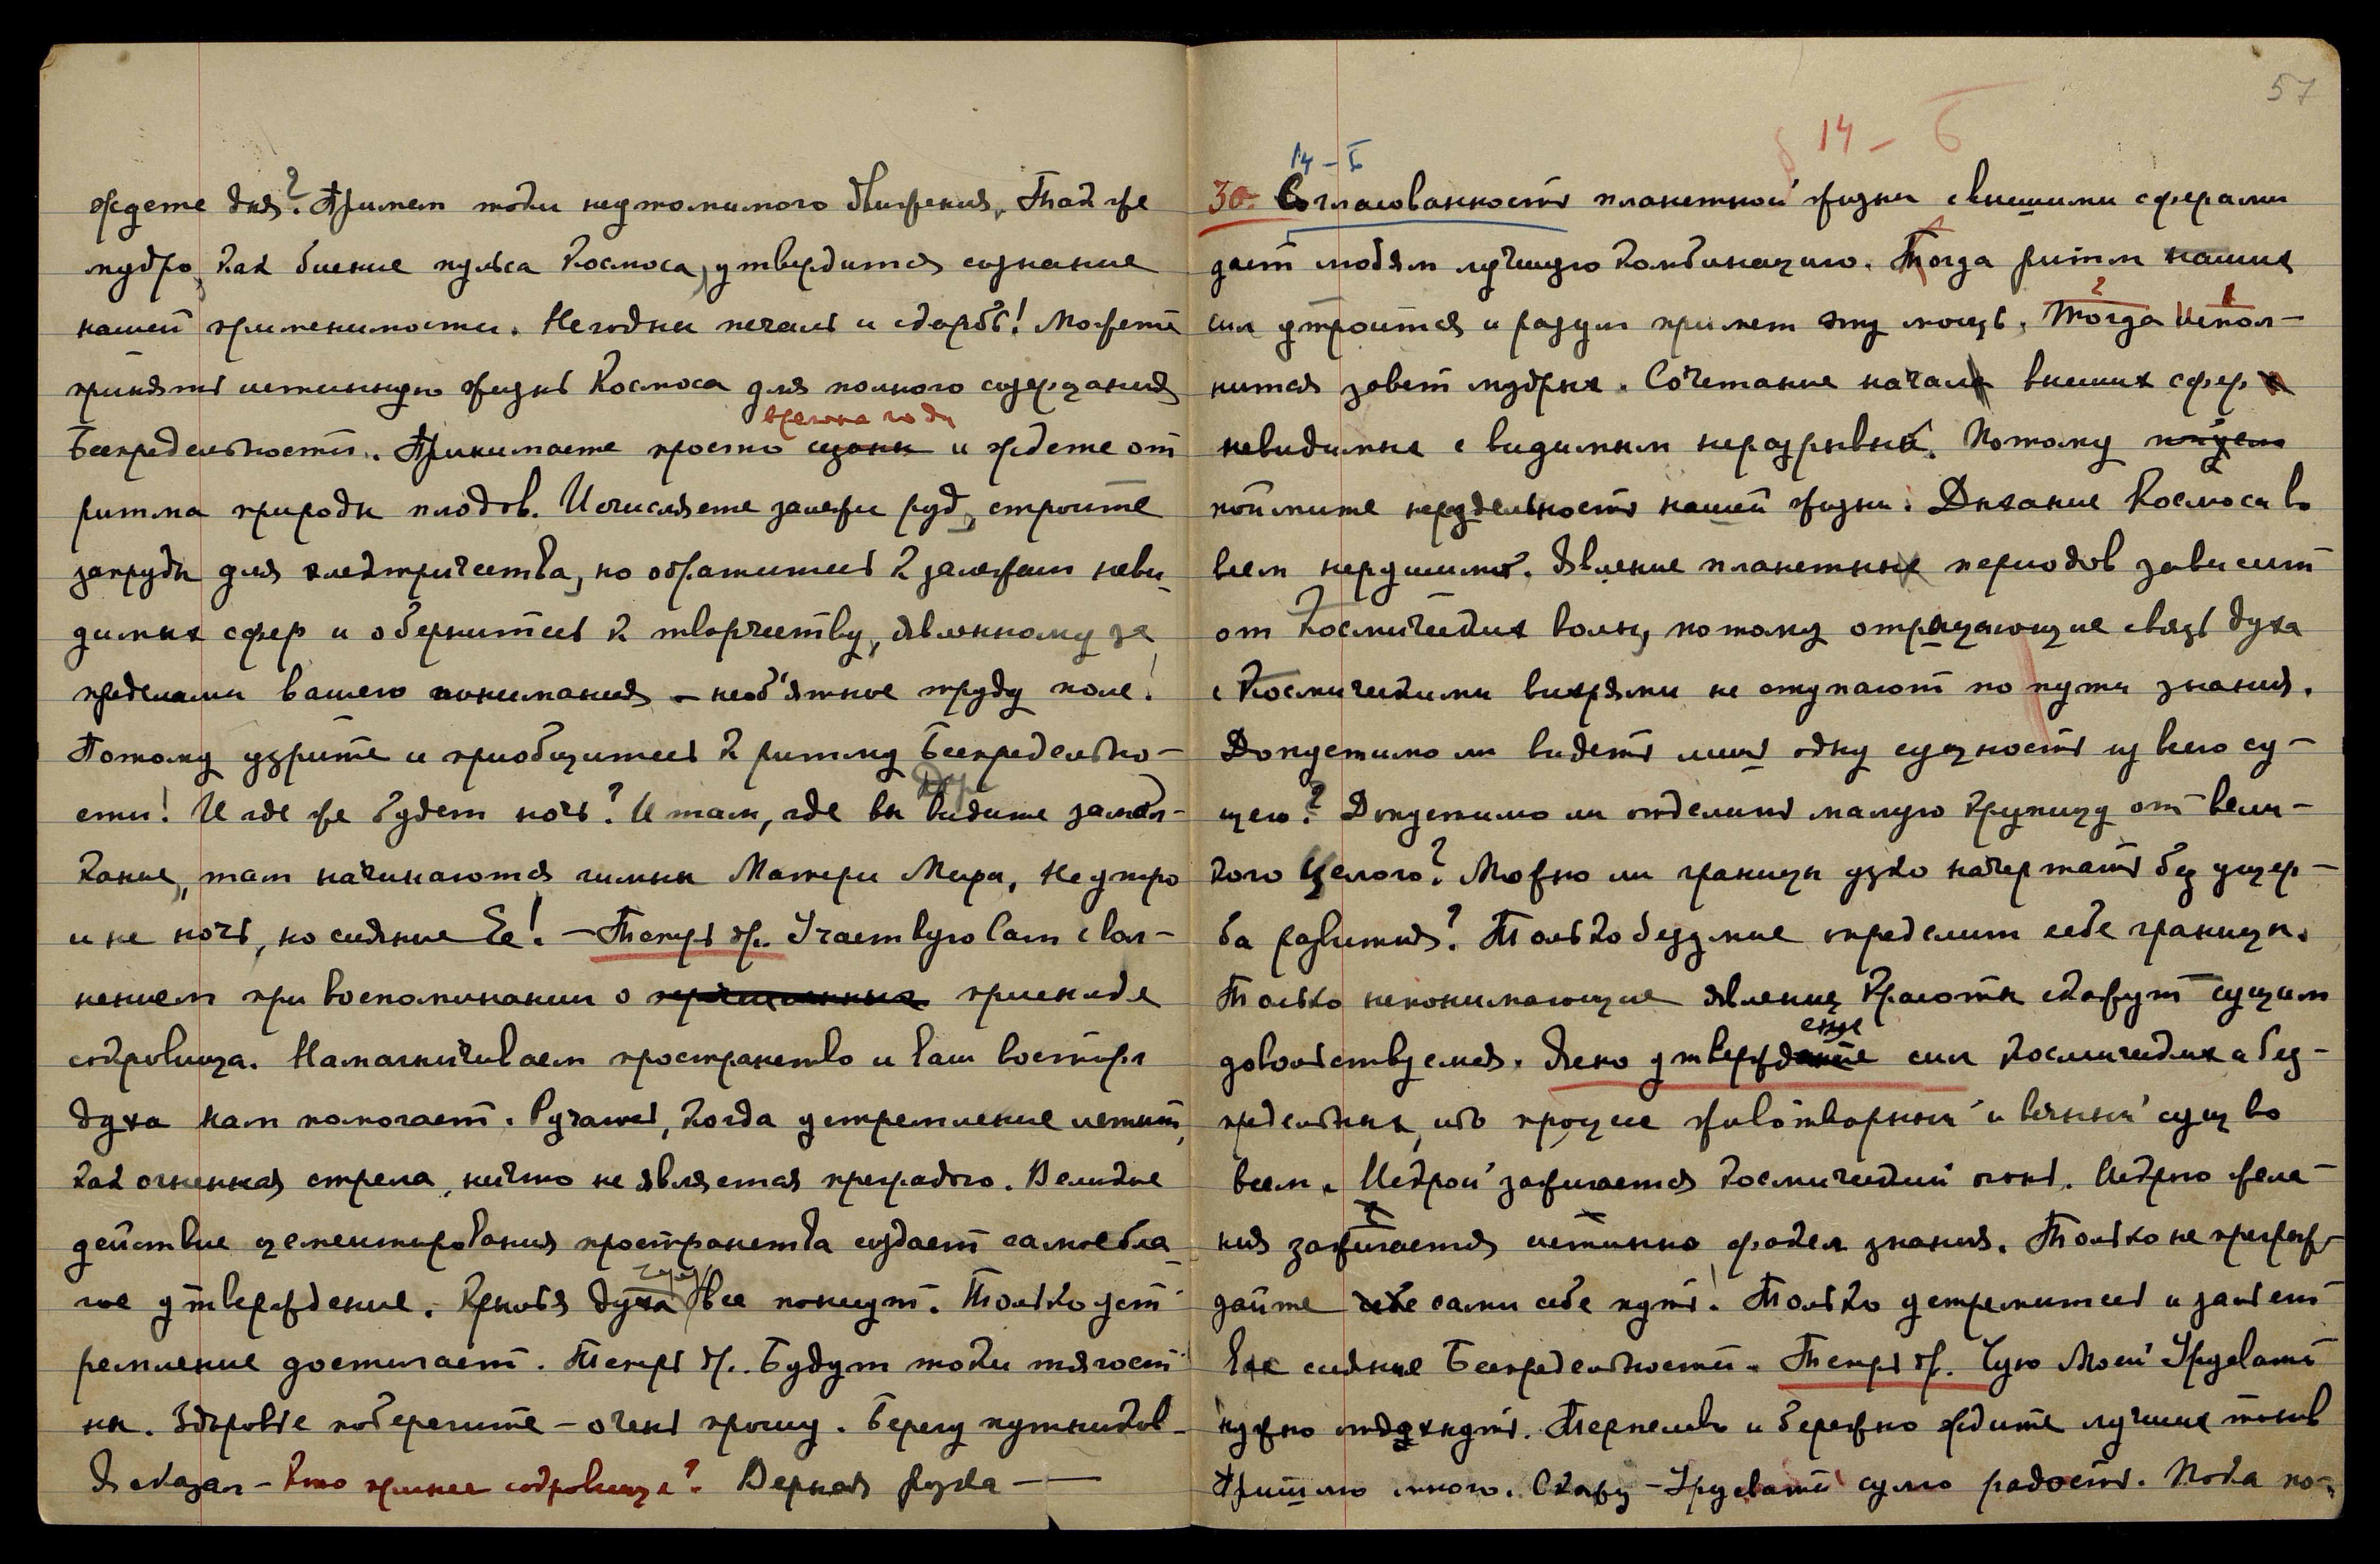 ждете дня? Примем токи неутомимого движения. Так же
мудро, как биение пульса Космоса, утвердится сознание
нашей применимости. Негодны печаль и скорбь! Можете
принять истинную жизнь Космоса для полного созерцания
времена года
Беспредельности. Принимаете просто сезоны и ждете от
ритма природы плодов. Исчисляете залежи руд, строите
запруды для электричества, но обратитесь к залежам неви-
димых сфер и обернитесь к творчеству, явленному за
пределами вашего понимания – необ'ятное труду поле!
Потому узрите и приобщитесь к ритму Беспредельно-
сти! И где же будет ночь? И там, где вы видите замол-
кание, там начинаются гимны Матери Мира, не утро
и не ночь, но сияние Ее! – Теперь др. Участвую Сам с вол-
нением при воспоминании о приснике
сокровища. Намагничиваем пространство и ваш восторг
духа нам помогает. Ручаюсь, когда устремление летит,
как огненная стрела, ничто не является преградою. Великое
действие цементирования пространства создает самое бла-
гое утверждение. Крылья духа все понесут. Только уст-
ремление достигает. Теперь др. Будут токи тягост-
ны. Здоровье поберегите – очень прошу. Берегу путников –
Я сказал – Кто принес сокровище? Верная рука –
57
§ 14 – Б
14 – Б
30. Согласованность планетной жизни с высшими сферами
дает людям лучшую комбинацию. Тогда ритм наших
сил утроится и разум примет эту мощь. Тогда испол-
2 1
нится завет мудрых. Сочетание начал высших сфер
невидимые с видимым неразрывны. Потому
поймите нераздельность нашей жизни. Дыхание Космоса во
всем нерушимо. Явление планетных периодов зависит
от Космических волн, потому отрицающие связь духа
с Космическими вихрями не ступают по пути знания.
Допустимо ли видеть лишь одну сущность из всего су-
щего? Допустимо ли отделить малую крупицу от вели-
кого Целого? Можно ли границы узко начертать без ущер-
ба развития? Только безумие определит себе границы.
Только непонимающие явление Красоты скажут сущим
ение
довольствуемся. Ясно утверждайте сил космических а без-
предельных, ибо процесс животворный и вечный сущ во
всем. Искрой зажигается космический огонь. Искрою жела-
ния зажигается истинно факел знания. Только не преграж-
дайте себе сами себе путь! Только устремитесь и зальет
вас сияние Беспредельности. Теперь др. Чую Моей Урусвати
нужно отдохнуть. Терпеливо и бережно ждите лучших токов
Пришлю много. Скажу – Урусвати сулю радость. Пока по-